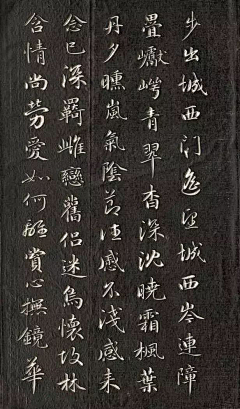 步出城西门遥望城西岑連障
疊巘崿青翠杳深沈曉霜楓葉
丹夕曛嵐氣陰節往慼不淺感来
念已深羈雌戀舊侶迷鳥懷故林
含情尚勞愛如何離賞心撫鏡華